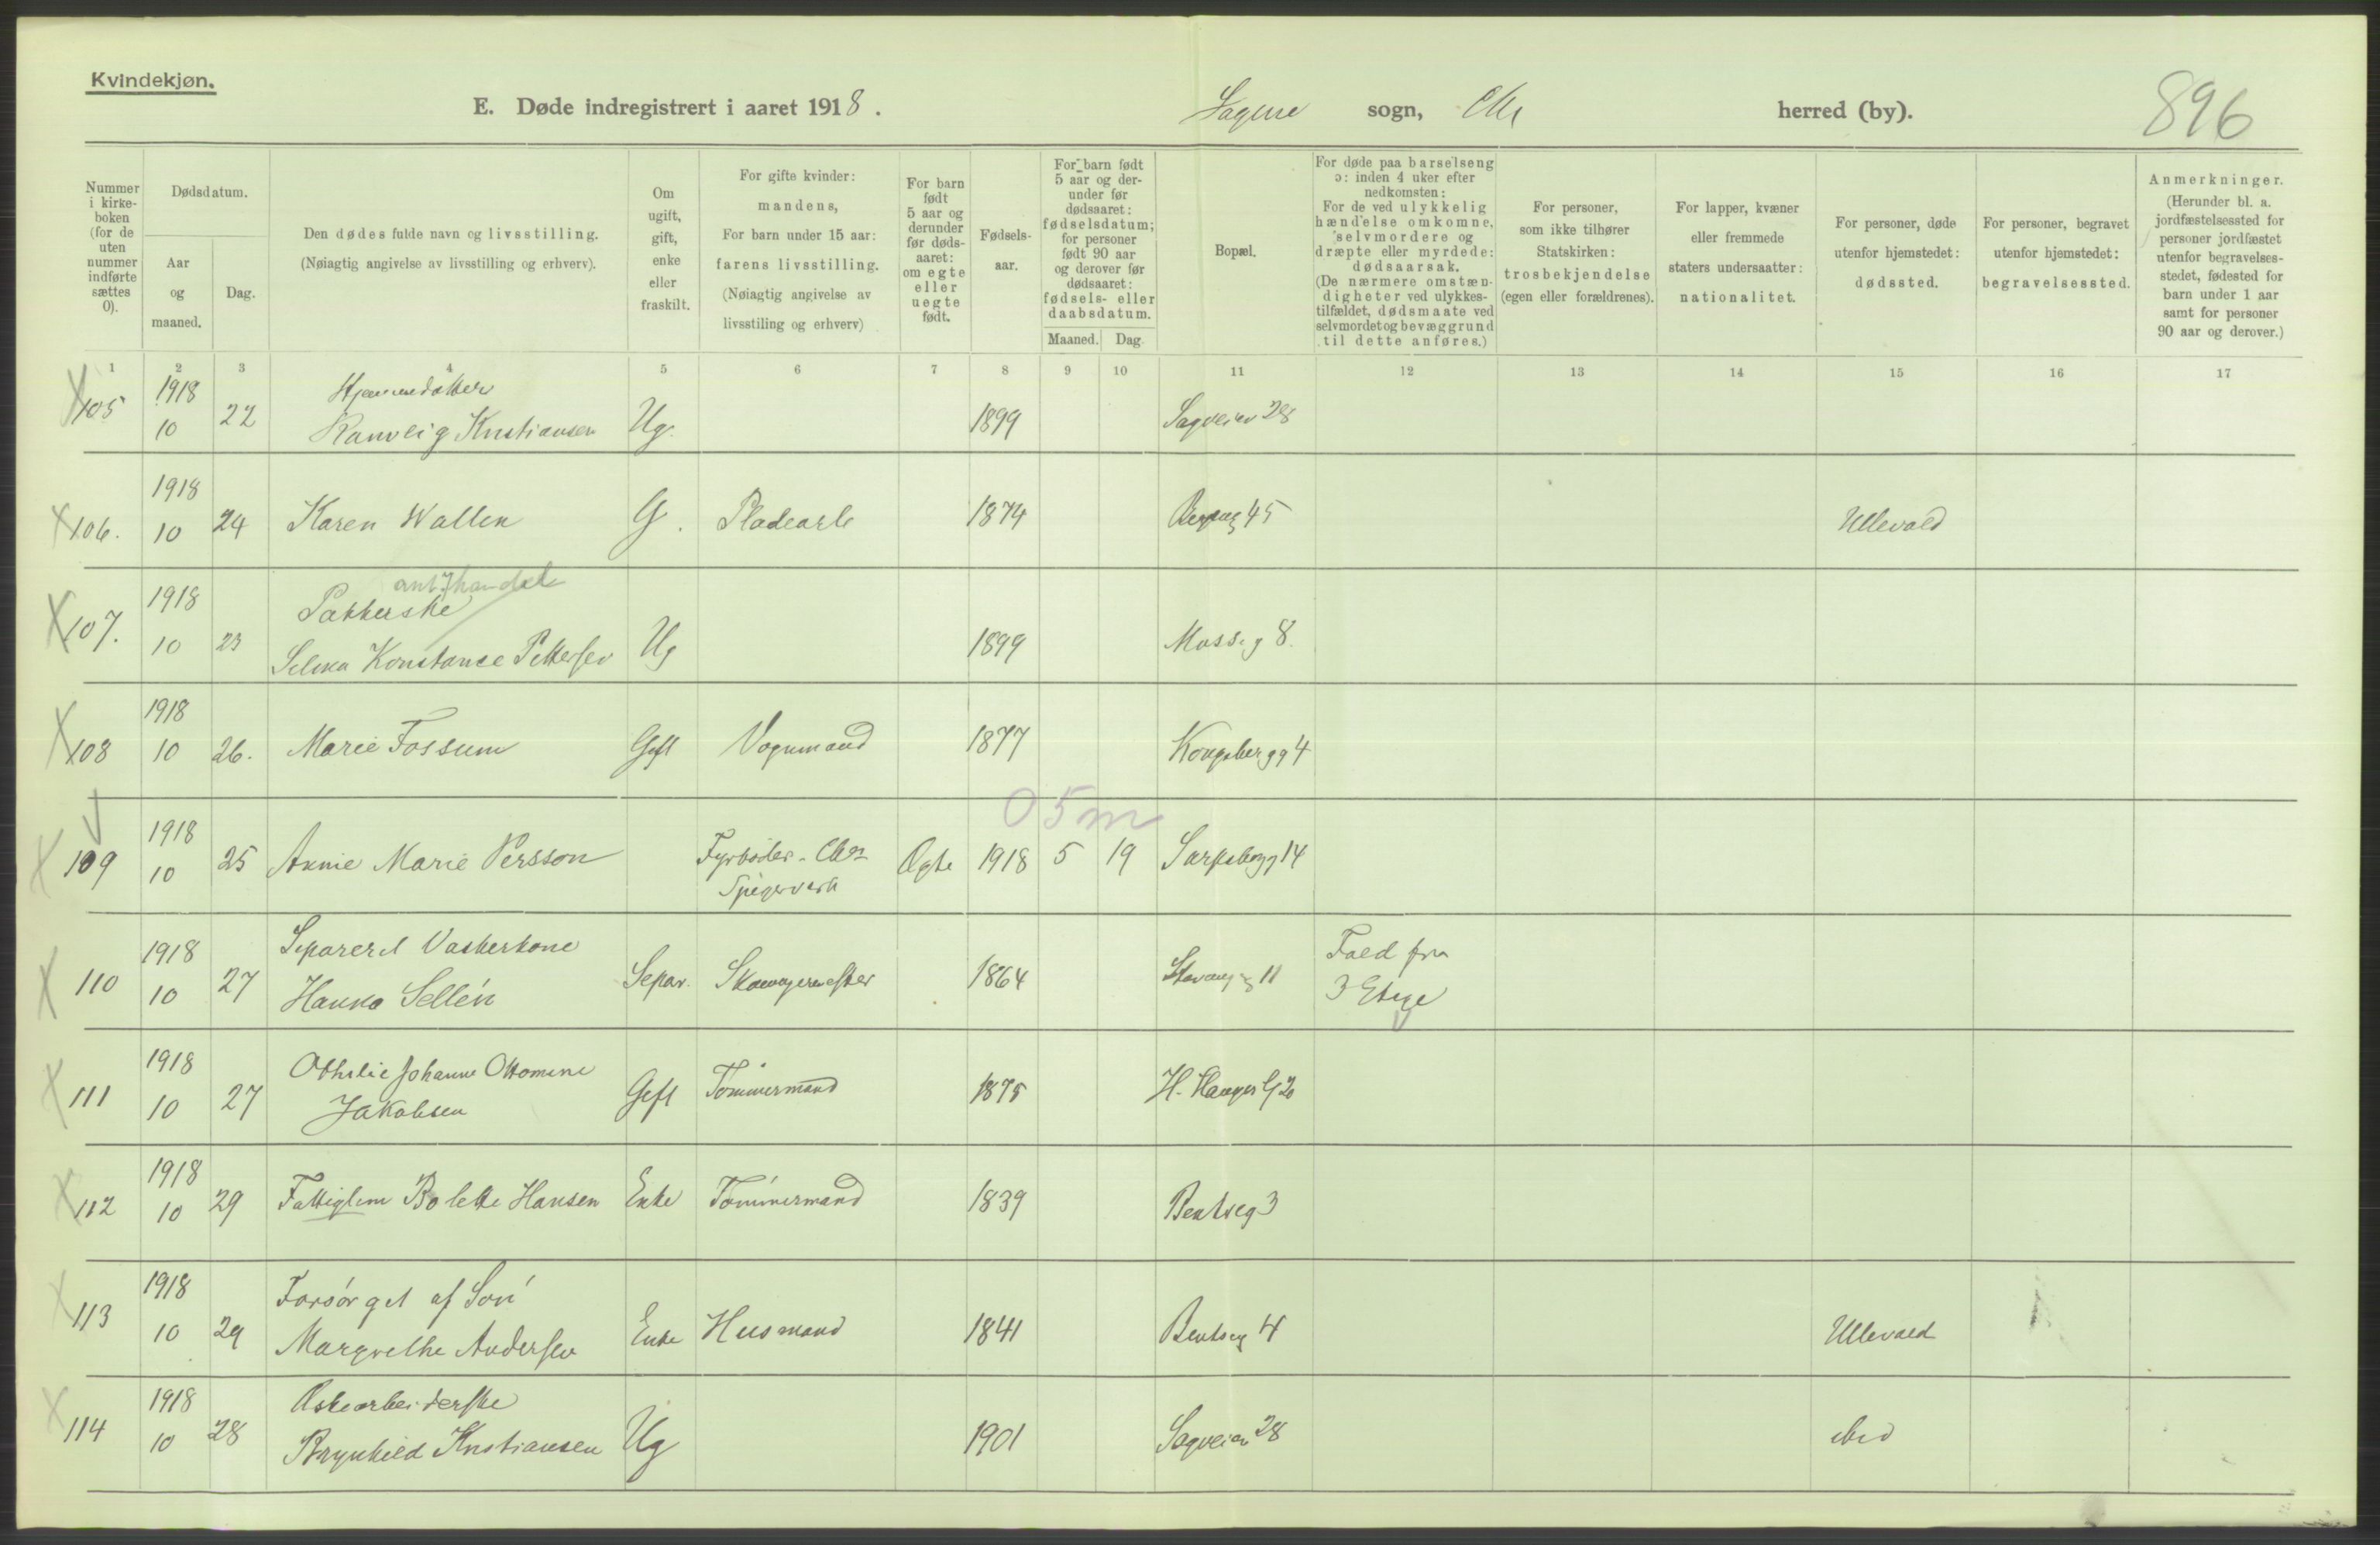 Kvindekjøn.
E. Døde indregistrert i aaret 1918.
Sagene sogn, Chr herred (by).
896
Nummer i kirke-boken (for de uten nummer indførte sættes 0).
Dødsdatum.
Aar og maaned.
Dag.
Den dødes fulde navn og livsstilling.
(Nøiagtig angivelse av livsstilling og erhverv).
Om ugift, gift, enke eller fraskilt.
For gifte kvinder:
mandens,
For barn under 15 aar:
farens livsstilling.
(Nøiagtig angivelse av
livsstiling og erhverv)
For barn født 5 aar og derunder før døds-aaret: om egte eller uegte født.
Fødsels-aar.
For barn født 5 aar og der-under før dødsaaret: fødselsdatum; for personer født 90 aar og derover før dødsaaret: fødsels- eller daabsdatum.
Maaned. Dag.
Bopæl.
For døde paa barselseng ɔ: inden 4 uker efter nedkomsten:
For de ved ulykkelig hændelse omkomne, selvmordere og dræpte eller myrdede: dødsaarsak.
(De nærmere omstæn-digheter ved ulykkes-tilfældet, dødsmaate ved selvmordet og bevæggrund til dette anføres.)
For personer, som ikke tilhører Statskirken: trosbekjendelse (egen eller forældrenes).
For lapper, kvæner eller fremmede staters undersaatter: nationalitet.
For personer, døde utenfor hjemstedet: dødssted.
For personer, begravet utenfor hjemstedet: begravelsessted.
Anmerkninger.
(Herunder bl. a. jordfæstelsessted for personer jordfæstet utenfor begravelses-stedet, fødested for barn under 1 aar samt for personer 90 aar og derover.)
1 2 3 4 5 6 7 8 9 10 11 12 13 14 15 16 17
X 105 1918 10 22 Hjemmedatter
Ranveig Kristiansen Ug. 1899 Sagveien 28
X 106. 1918 10 24 Karen Wallen G. Pladearb 1874 45 Ullevold
X 107. 1918 10 23 Pakkerske
Selma Konstanse Pettersen Ug 1899 Mosseg 8.
X 108 1918 10 26. Marie Fossum Gift Vognmand 1877 Kongsbergg 4
05m
X 109 1918 10 25 Annie Marie Persson Fyrbøder - Chra
Spigerverk Egte 1918 5 19 Sarpsborgg 14
X 110 1918 10 27 Separeret Vaskerkone
Hanna Sellén Separ. 1864 Stavangg 11 Fald fra
3 Etage
X 111 1918 10 27 Othilie Johanne Ottomine
Jakobsen Gift Tømmermand 1875 H. Hauges G 20
X 112 1918 10 29 Fattiglem Bolette Hansen Enke Tømmermand 1839 Bentseg 3
X 113 1918 10 29 Forsørget af Søn
Margrethe Andersen Enke Husmand 1841 Bentseg 4 Ullevold
X 114 1918 10 28 Eskearbeiderske
Brynhild Kristiansen Ug 1901 Sagveien 28 ibid